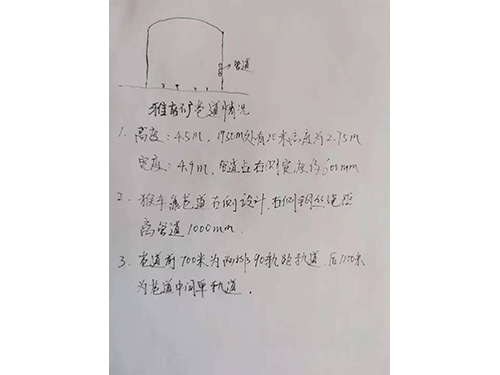 管道
雅店矿巷道情况
1. 高度：4.5m，1950m处有20米高度为2.75m
宽度：4.9m，管道占右侧宽度约600mm
2. 猴车靠巷道右侧设计，右侧钢丝绳距
离管道1000mm.
3. 巷道前700米为两排90轨距轨道，后1100米
为巷道中间单轨道。